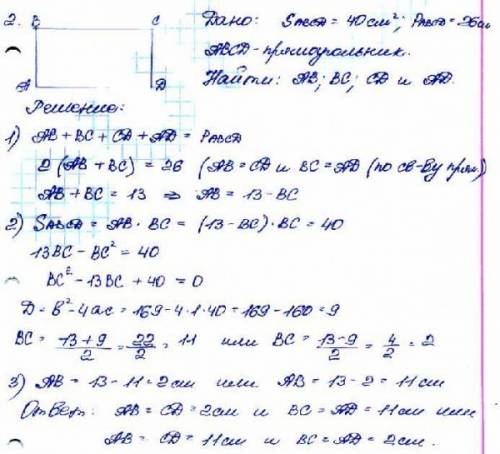 2. B C Дано: SABCD = 40 см²; PABCD = 26 см
ABCD - прямоугольник.
A D Найти: AB; BC; CD и AD.
Решение:
1) AB + BC + CD + AD = PABCD
2 (AB + BC) = 26 (AB = CD и BC = AD (по св-ву прям.)
AB + BC = 13 ⇒ AB = 13 - BC
2) SABCD = AB · BC = (13 - BC) · BC = 40
13BC - BC² = 40
BC² - 13BC + 40 = 0
D = b² - 4ac = 169 - 4·1·40 = 169 - 160 = 9
BC = (13+9)/2 = 22/2 = 11 или BC = (13-9)/2 = 4/2 = 2
3) AB = 13 - 11 = 2 см или AB = 13 - 2 = 11 см
Ответ: AB = CD = 2 см и BC = AD = 11 см или
AB = CD = 11 см и BC = AD = 2 см.